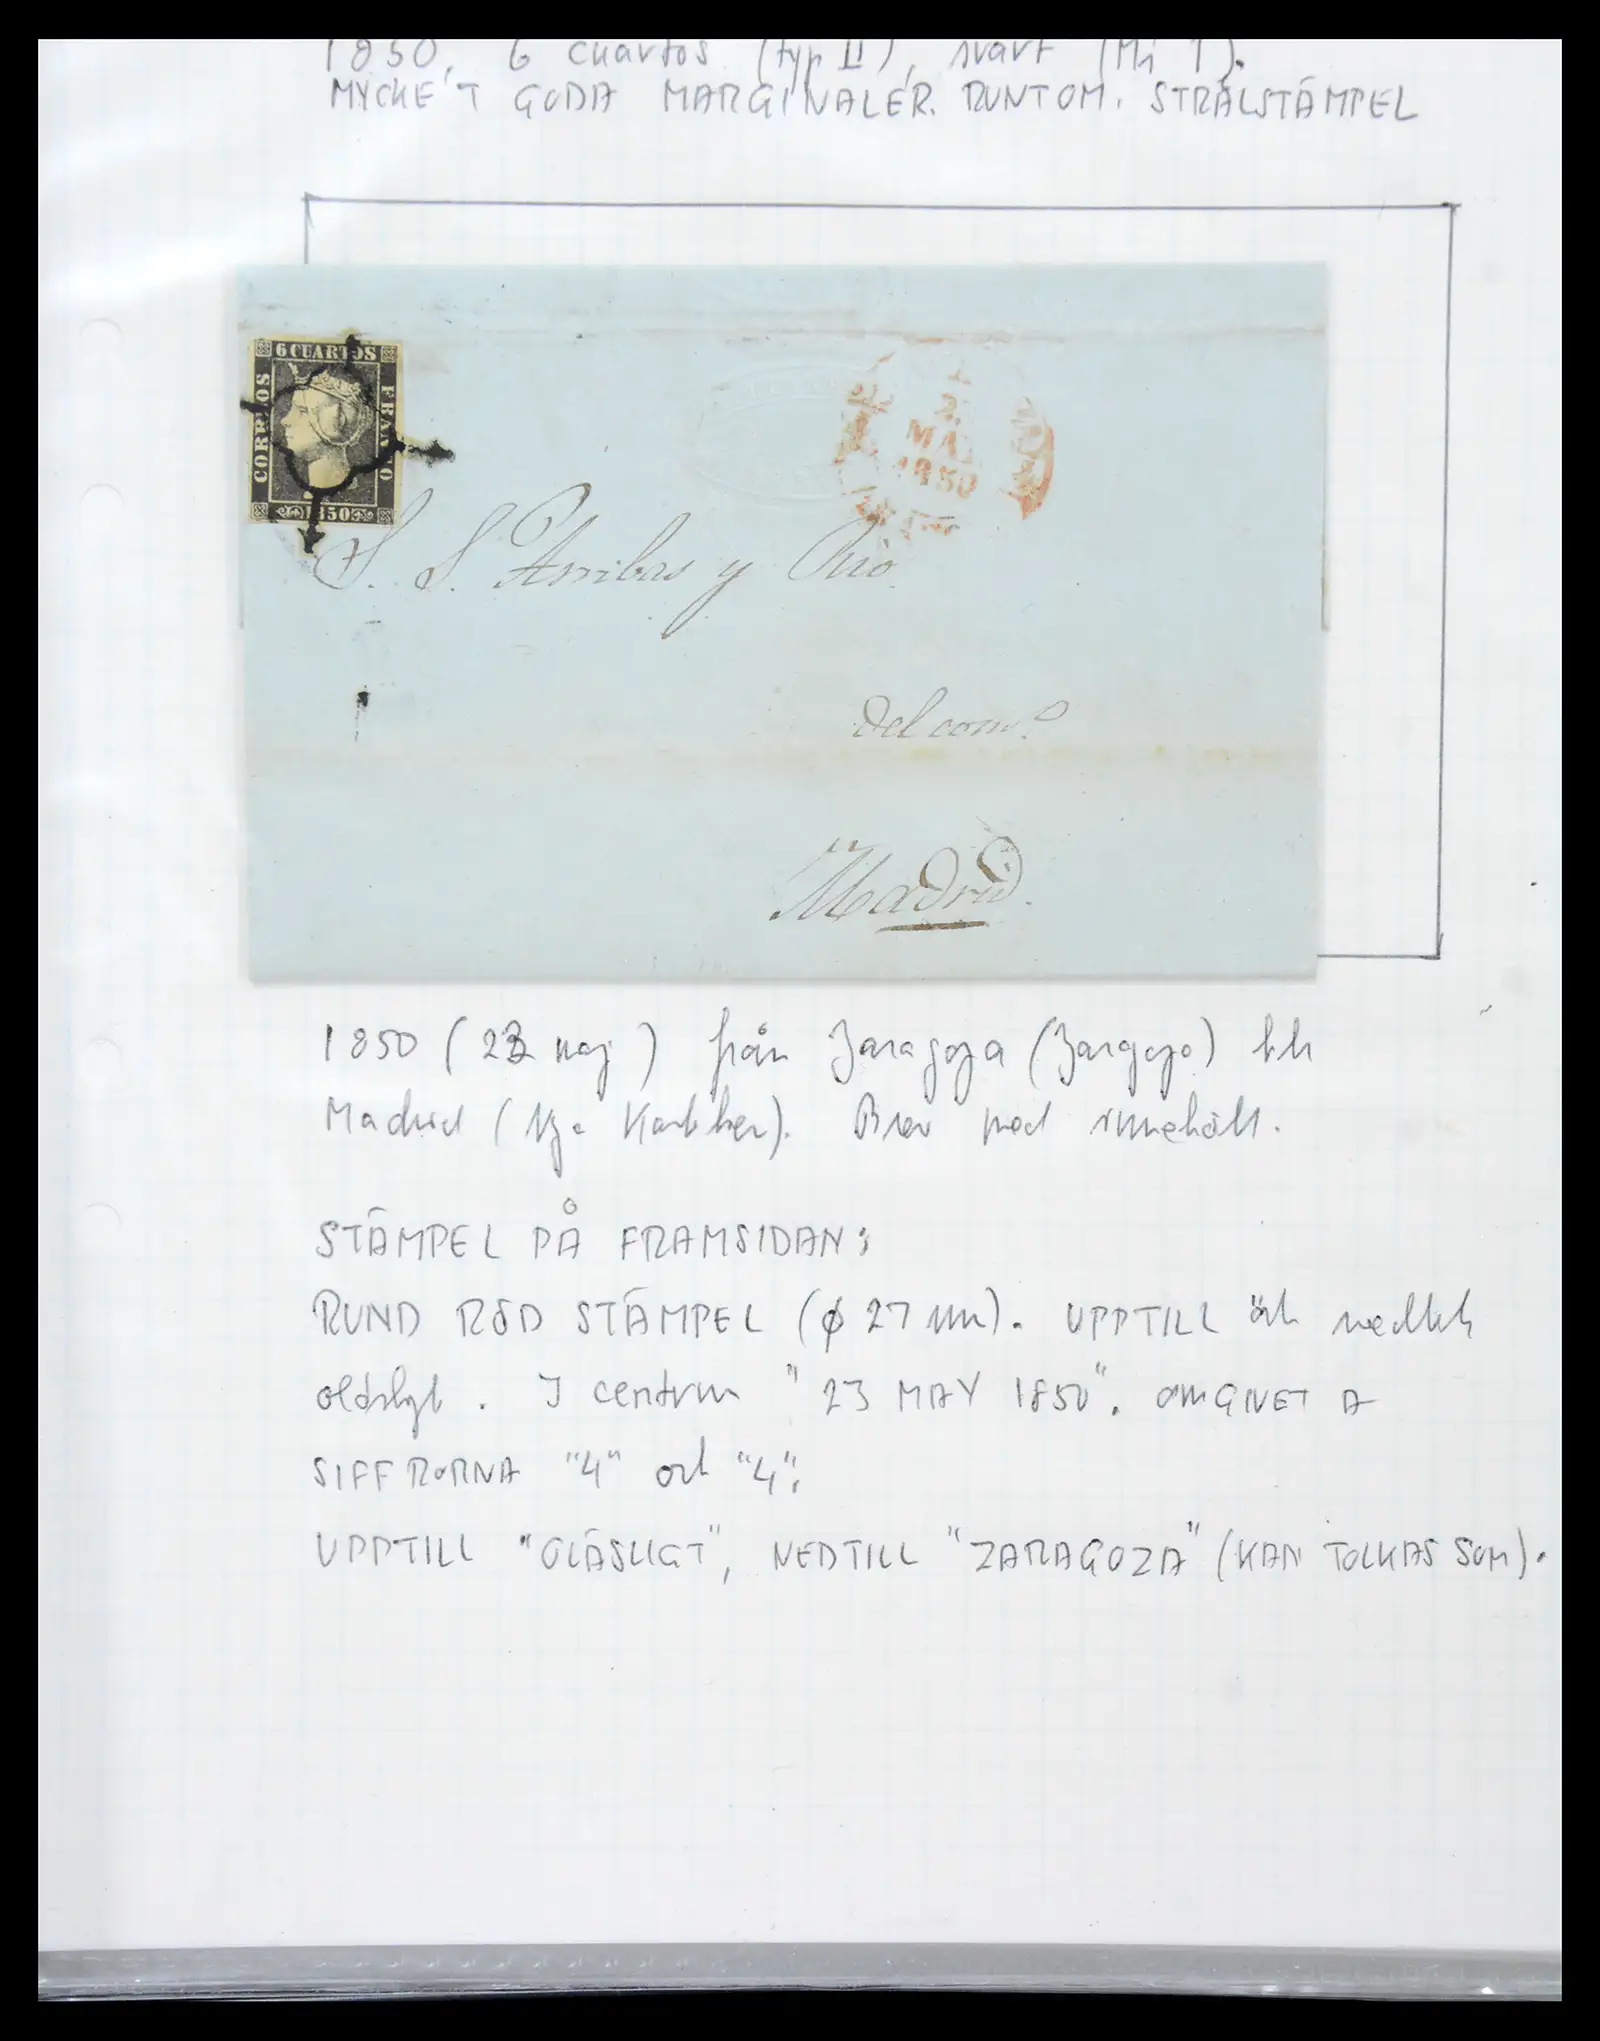 1850. 6 cuartos (typ II), svart (Mi 1).
MYCKET GODA MARGINALER RUNTOM. STRÅLSTÄMPEL
6 CUARTOS
CORREOS
FRANCO
1850
MA
1850
S. S. Arribas y
del com.o
Madrid.
1850 (23 maj) från Zaragoza (Zaragoza) till
Madrid (Nya Kastilien). Brev med innehåll.
STÄMPEL PÅ FRAMSIDAN:
RUND RÖD STÄMPEL (ϕ 27 mm). UPPTILL och nedtill
oläsligt. I centrum "23 MAY 1850". OMGIVET A
SIFFRORNA "4" och "4".
UPPTILL "OLÄSLIGT", NEDTILL "ZARAGOZA" (KAN TOLKAS SOM).